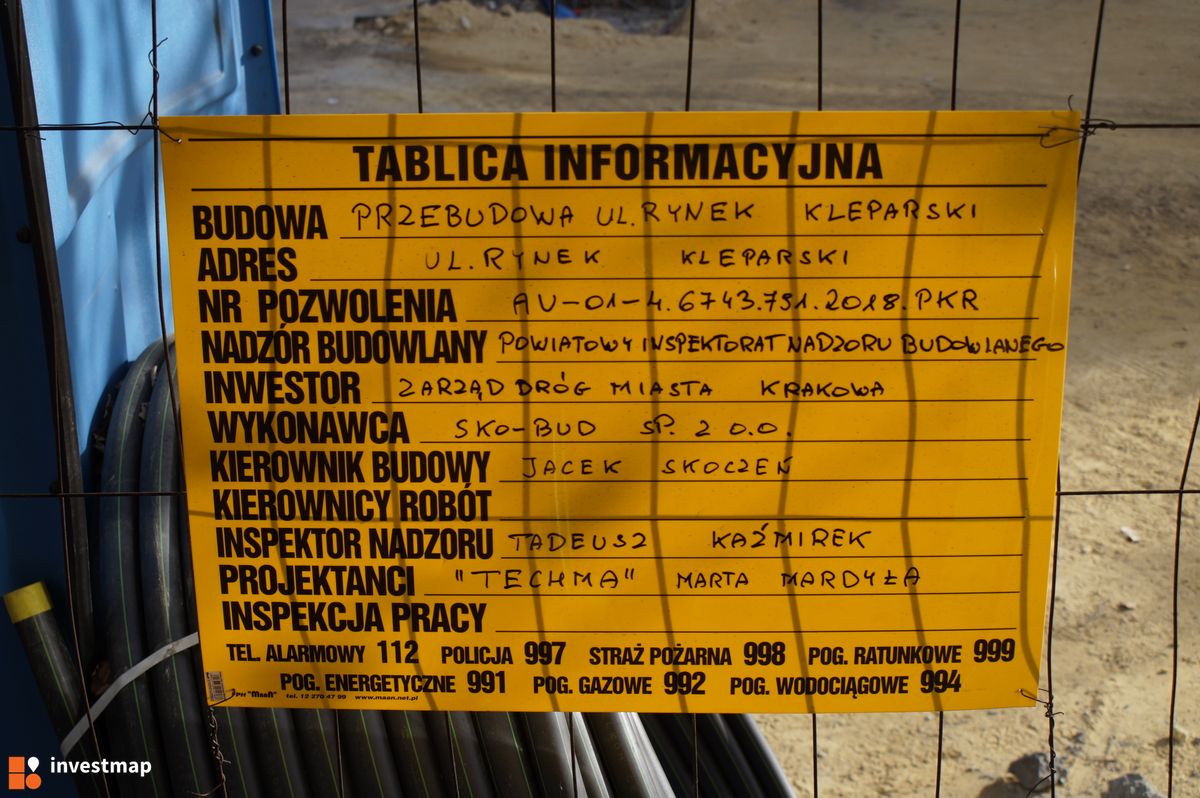 TABLICA INFORMACYJNA
BUDOWA PRZEBUDOWA UL.RYNEK KLEPARSKI
ADRES UL.RYNEK KLEPARSKI
NR POZWOLENIA AU-01-4.6743.751.2018.PKR
NADZÓR BUDOWLANY POWIATOWY INSPEKTORAT NADZORU BUDOWLANEGO
INWESTOR ZARZĄD DRÓG MIASTA KRAKOWA
WYKONAWCA SKO-BUD SP. Z O.O.
KIEROWNIK BUDOWY JACEK SKOCZEŃ
KIEROWNICY ROBÓT
INSPEKTOR NADZORU TADEUSZ KAŹMIREK
PROJEKTANCI "TECHMA" MARTA MARDYŁA
INSPEKCJA PRACY
TEL. ALARMOWY 112 POLICJA 997 STRAŻ POŻARNA 998 POG. RATUNKOWE 999
POG. ENERGETYCZNE 991 POG. GAZOWE 992 POG. WODOCIĄGOWE 994
PH "MaaN" tel. 12 270 47 99 www.maan.net.pl
investmap